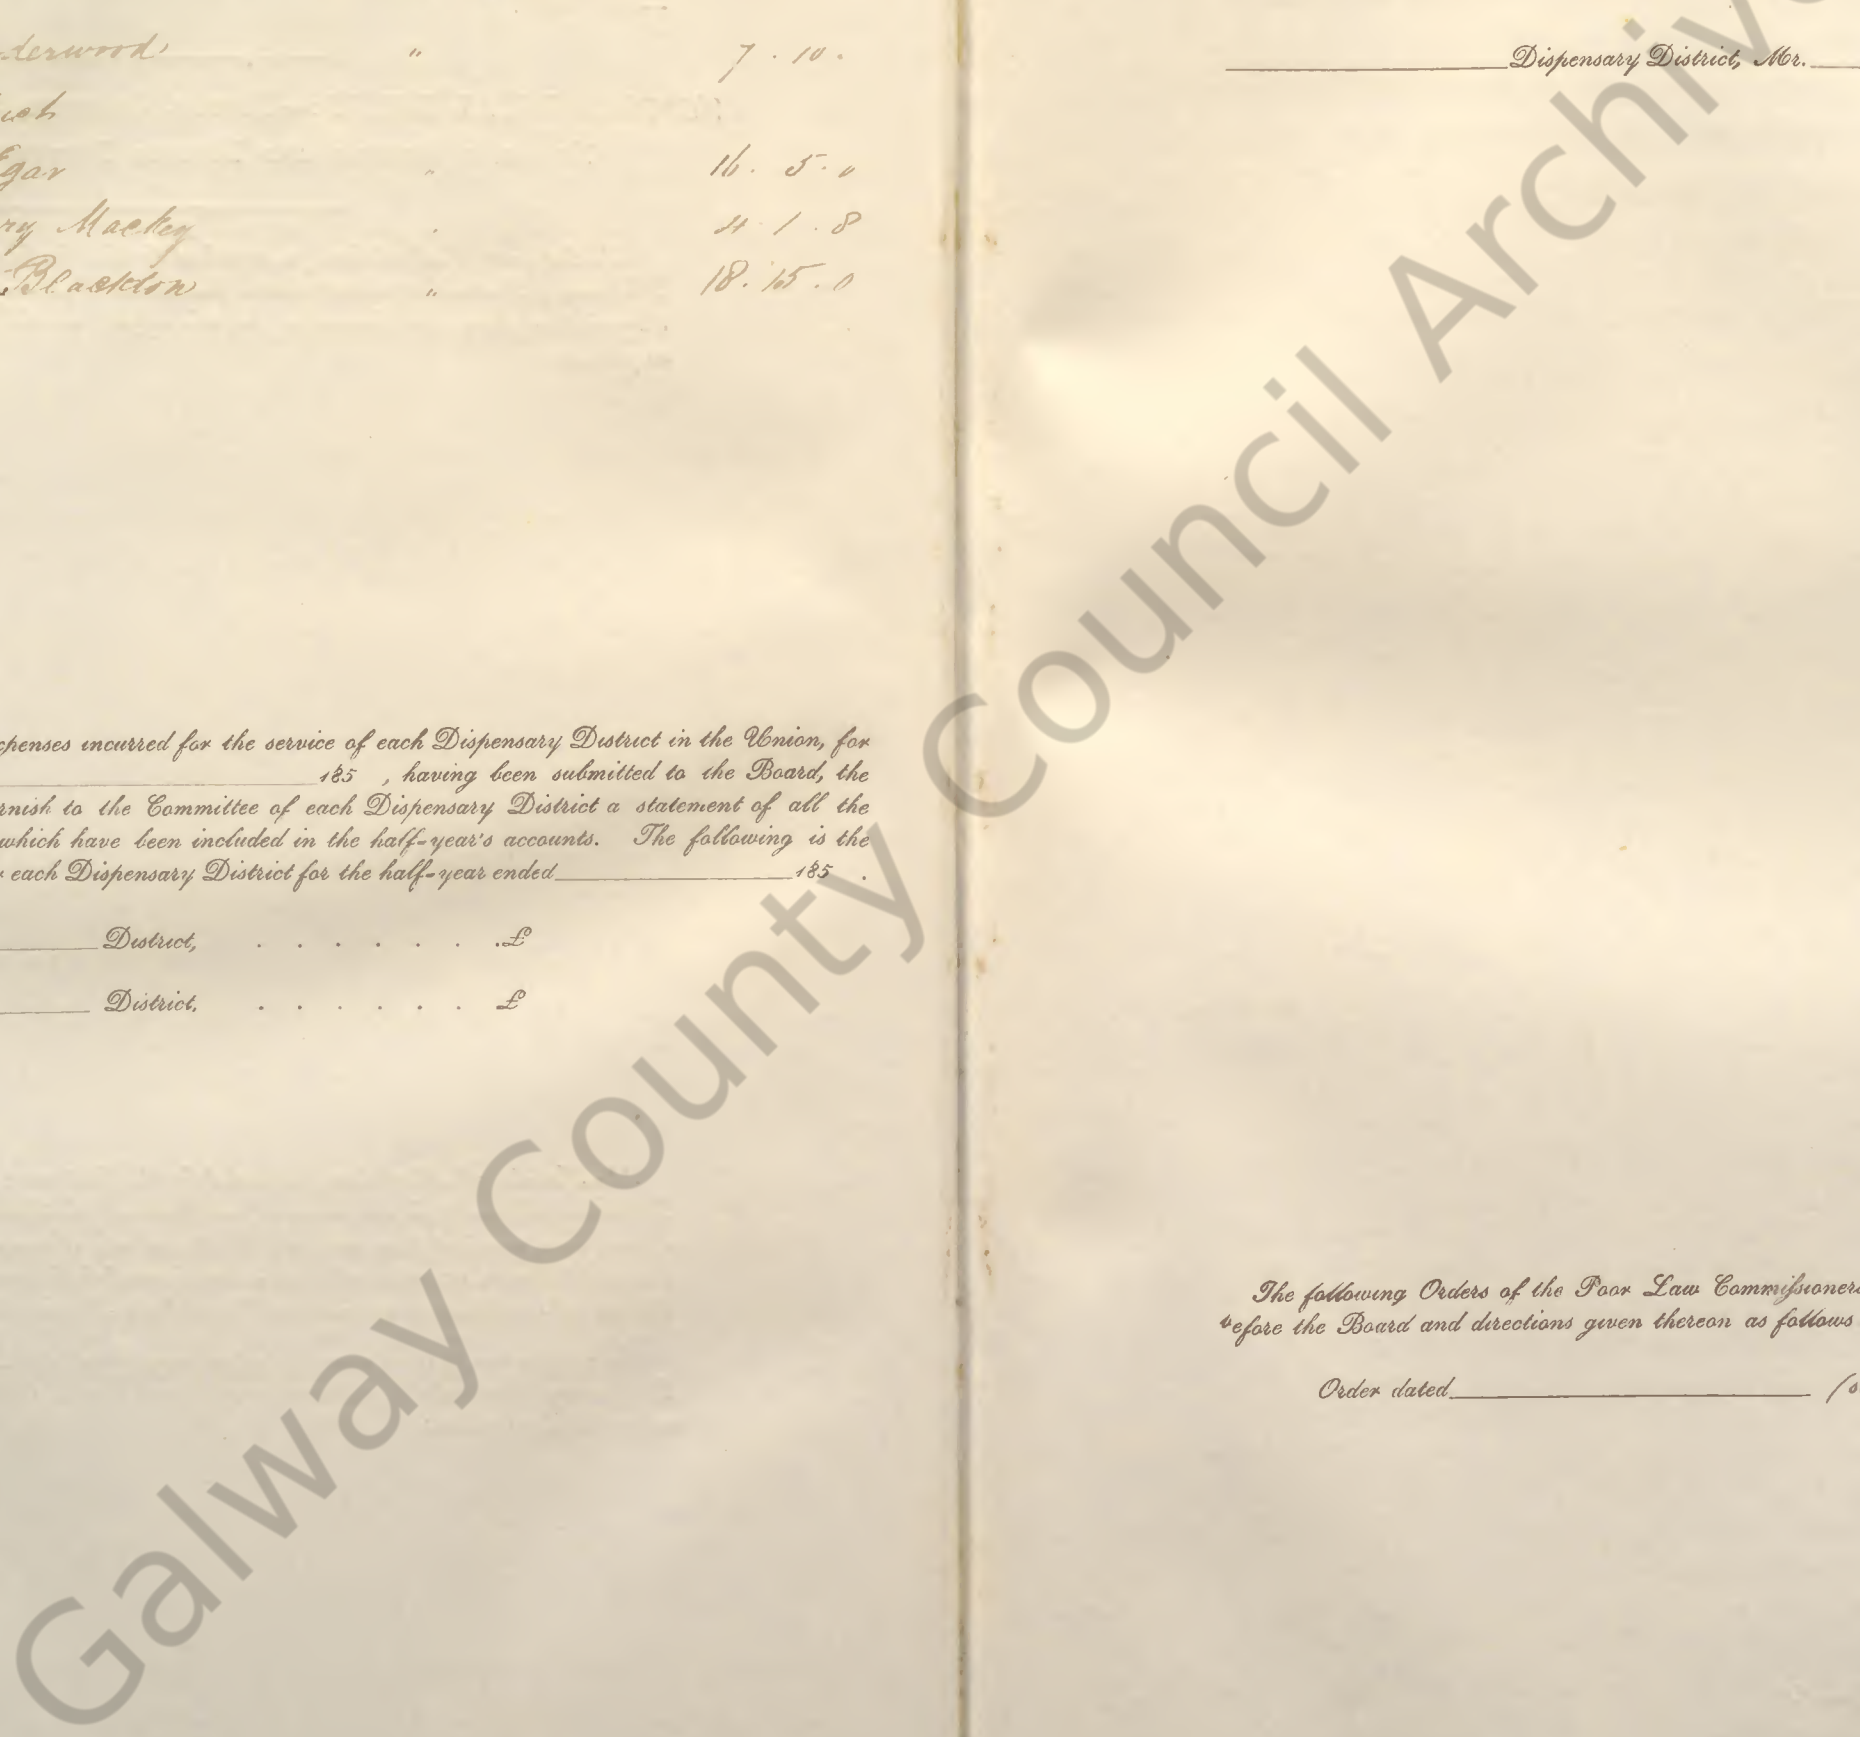 derwood " 7 . 10 .
Egar " 16 . 5 . 0
ry Mackey " 4 . 1 . 8
Blackton " 18 . 15 . 0
penses incurred for the service of each Dispensary District in the Union, for
185 , having been submitted to the Board, the
rnish to the Committee of each Dispensary District a statement of all the
which have been included in the half-year's accounts. The following is the
each Dispensary District for the half-year ended 185 .
District, . . . . . . . £
District. . . . . . . £
Dispensary District, Mr.
The following Orders of the Poor Law Commissioners
before the Board and directions given thereon as follows
Order dated
Galway County Council Archive